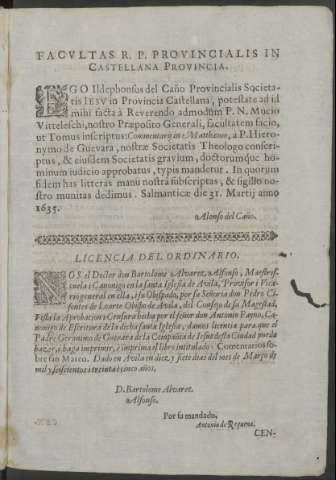 FACVLTAS R. P. PROVINCIALIS IN
CASTELLANA PROVINCIA.
EGO Ildephonsus del Caño Provincialis Societa-
tis IESV in Provincia Castellana, potestate ad id
mihi facta à Reverendo admodùm P. N. Mucio
Vitteleschi, nostro Præposito Generali, facultatem facio,
ut Tomus inscriptus: Commentarij in Matthæum, à P. Hiero-
nymo de Guevara, nostræ Societatis Theologo conscri-
ptus, & eiusdem Societatis gravium, doctorumque ho-
minum iudicio approbatus, typis mandetur. In quorum
fidem has litteras manu nostra subscriptas, & sigillo no-
stro munitas dedimus. Salmanticæ die 31. Martij anno
1635.
Alonso del Caño.
LICENCIA DEL ORDINARIO.
NOS el Doctor don Bartolome Alvarez, Alfonso, Maestres-
cuela i Canonigo en la santa Iglesia de Avila, Provisor i Vica-
rio general en ella, i su Obispado, por su Señoria don Pedro Ci-
fuentes de Loarte Obispo de Avila, del Consejo de su Magestad,
Vista la Aprobacion i Censura hecha por el señor don Antonio Ca-
nonigo de Escritura de la dicha santa Iglesia, damos licencia para que el
Padre Geronimo de Guevara de la Compañia de Iesus desta Ciudad pueda
hazer, i haga imprimir, è imprima el libro intitulado: Comentarios so-
bre san Mateo. Dado en Avila en diez y siete dias del mes de Março de
mil y seiscientos i treinta i cinco años.
D. Bartolome Alvarez.
Alfonso.
Por su mandado,
Antonio de Reguena.
CEN-